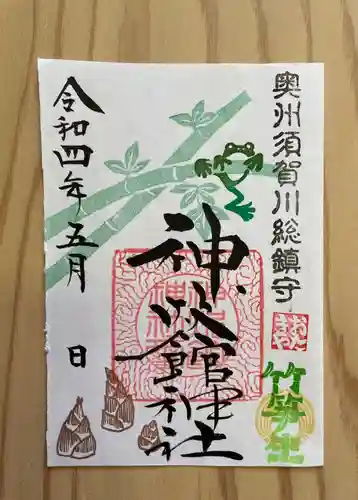 奥州須賀川総鎮守
神炊館神社
竹笋生
令和四年五月　日